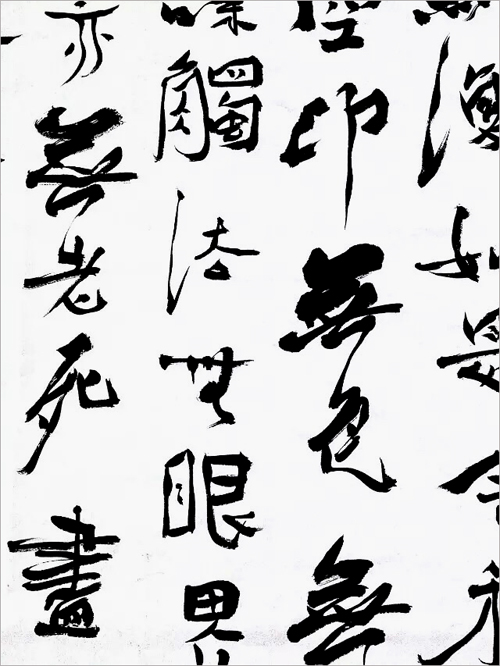 復如是
空中無色無
味觸法無眼界
亦無老死盡